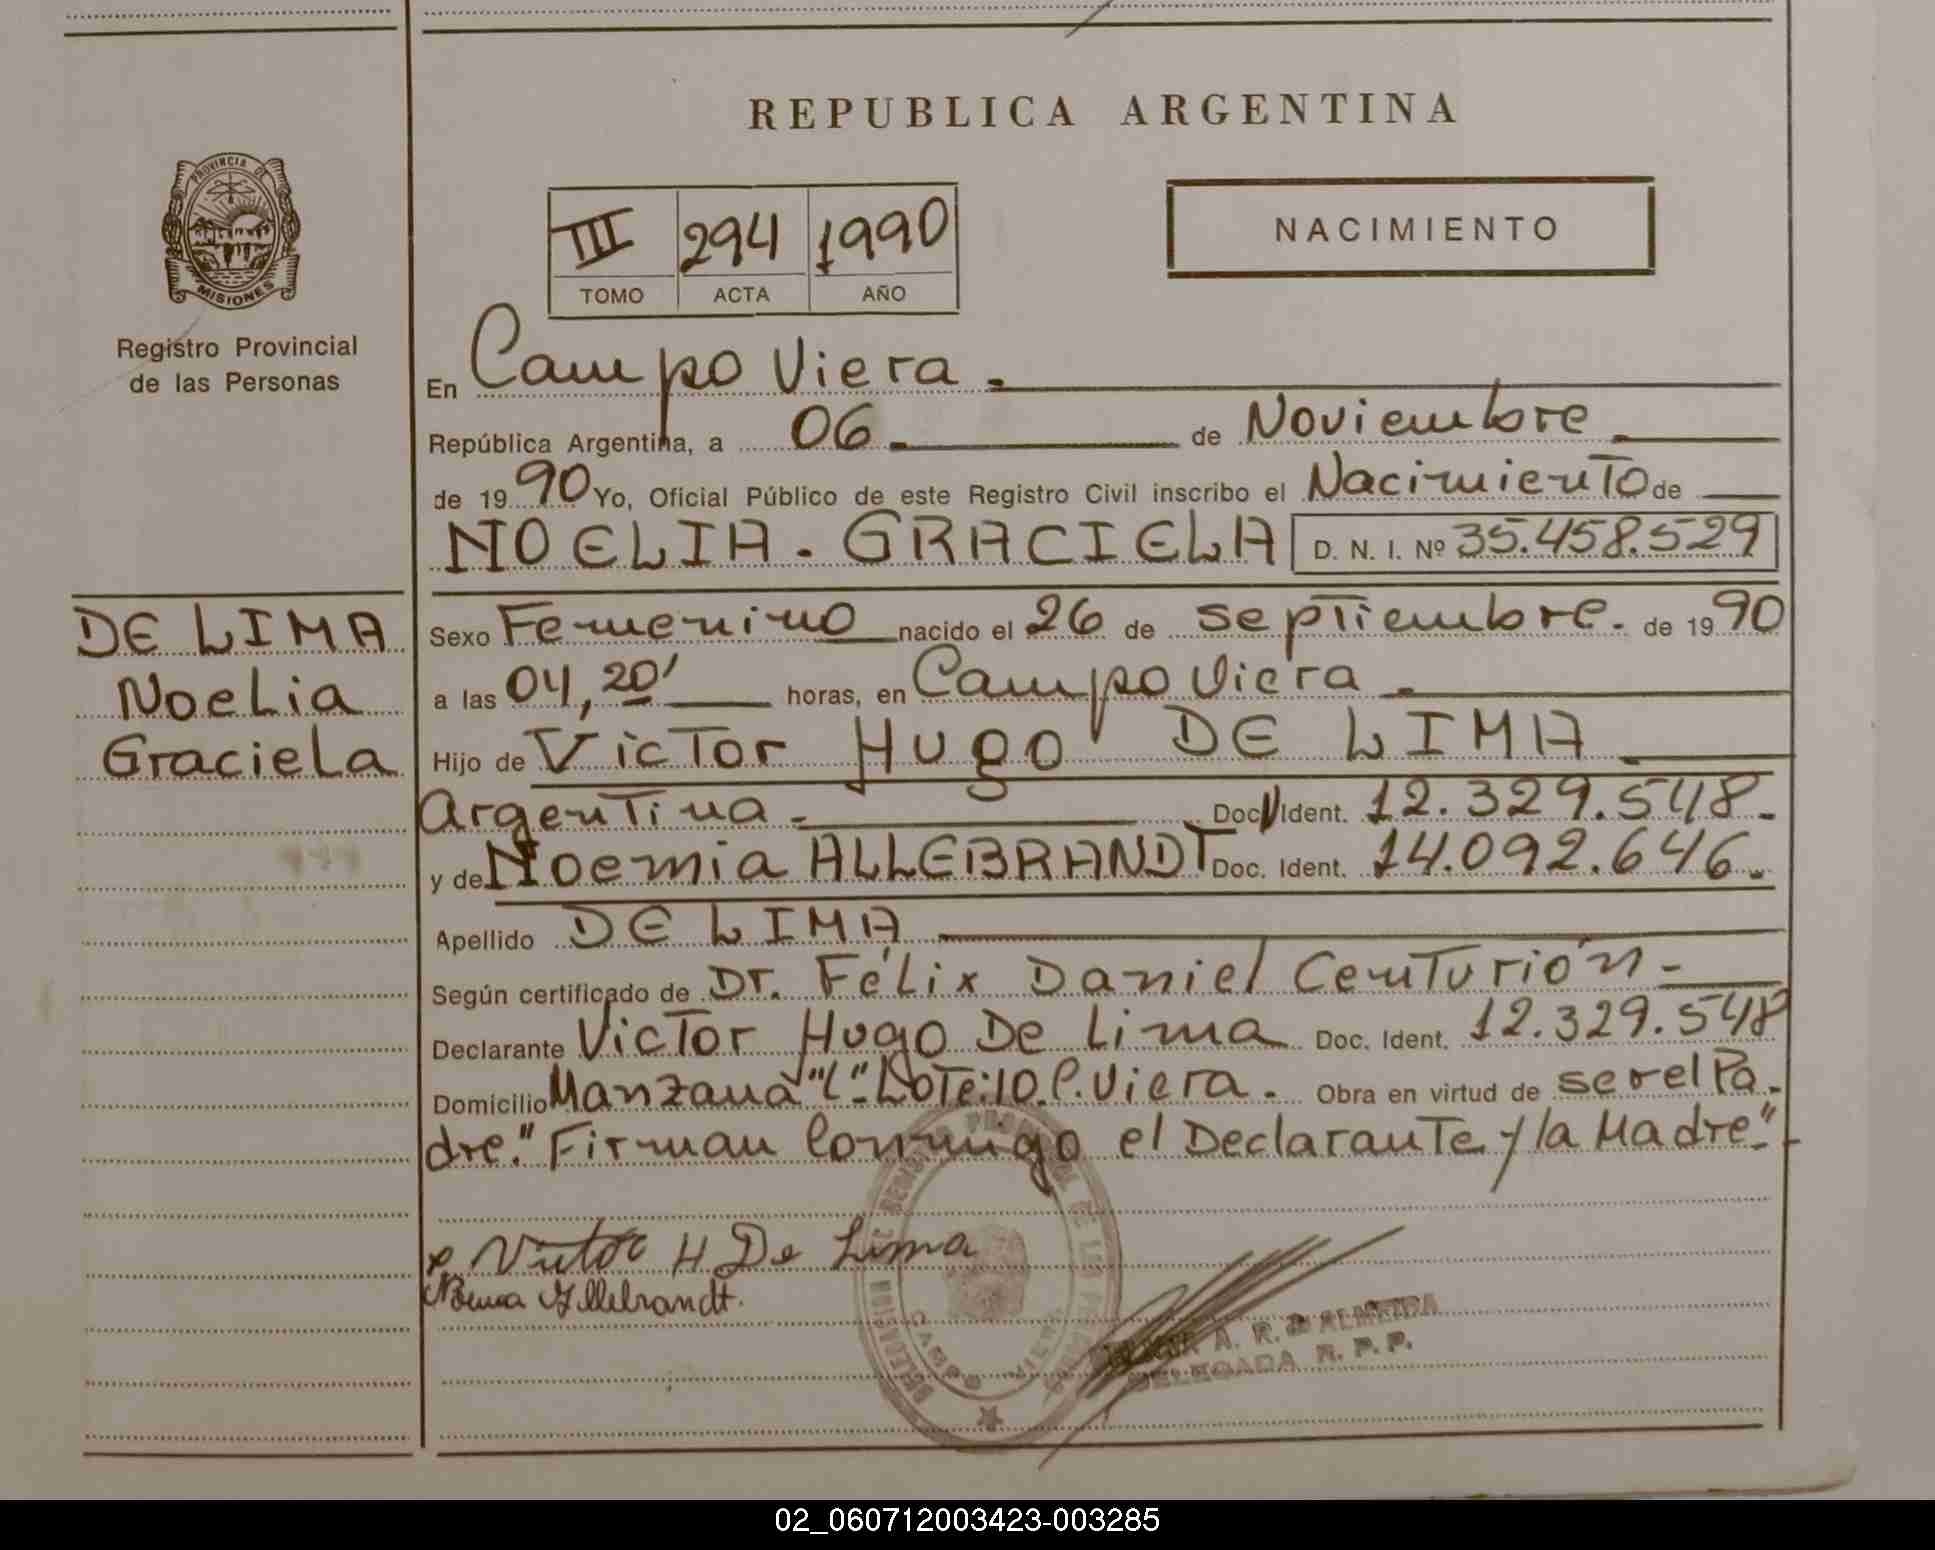 REPUBLICA ARGENTINA
PROVINCIA DE
MISIONES
Registro Provincial
de las Personas
III 294 1990
TOMO ACTA AÑO
NACIMIENTO
En Campo Viera.
República Argentina, a 06. de Noviembre
de 1990 Yo, Oficial Público de este Registro Civil inscribo el Nacimiento de
NOELIA. GRACIELA D. N. I. Nº 35.458.529
DE LIMA
Noelia
Graciela
Sexo Femenino nacido el 26 de septiembre. de 1990
a las 04,20' horas, en Campo Viera.
Hijo de Victor Hugo DE LIMA
Argentina. Doc. Ident. 12.329.548.
y de Noemia ALLEBRANDT Doc. Ident. 14.092.646.
Apellido DE LIMA
Según certificado de Dr. Félix Daniel Centurión.
Declarante Victor Hugo De Lima Doc. Ident. 12.329.548
Domicilio Manzana "C". Lote:10. C. Viera. Obra en virtud de ser el Pa-
dre." Firman Conmigo el Declarante y la Madre".
Victor H De Lima
Allebrandt.
A. R. ALMEIDA
DELEGADA R. P. P.
02_060712003423-003285